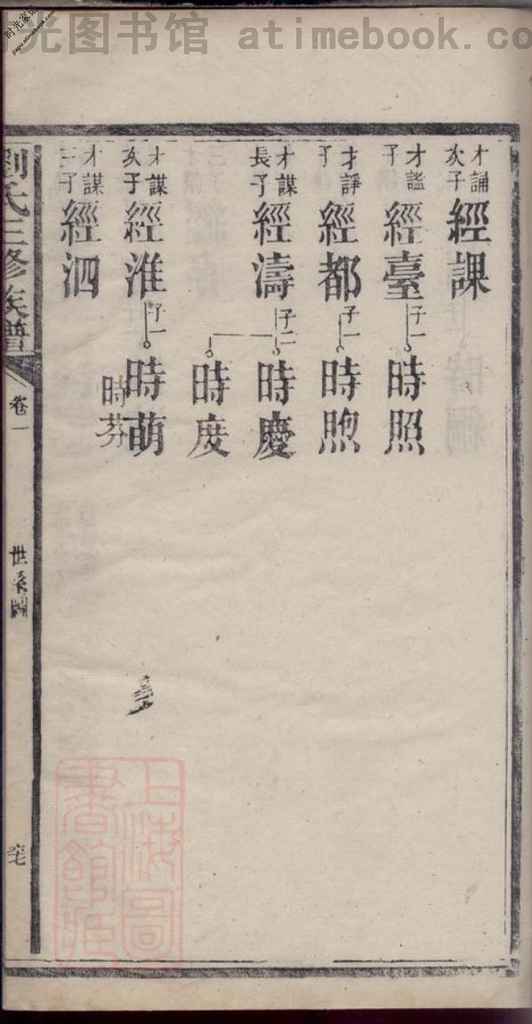 光图书馆 atimebook.com
才誦次子 經課
才謐子 經臺 子一 時照
才諍子 經都 子一 時煦
才謀長子 經濤 子二 時慶
時度
才謀次子 經淮 子一 時萌
時芬
才謀三子 經泗
劉氏三修族譜
卷一
世系圖
上海圖書館藏